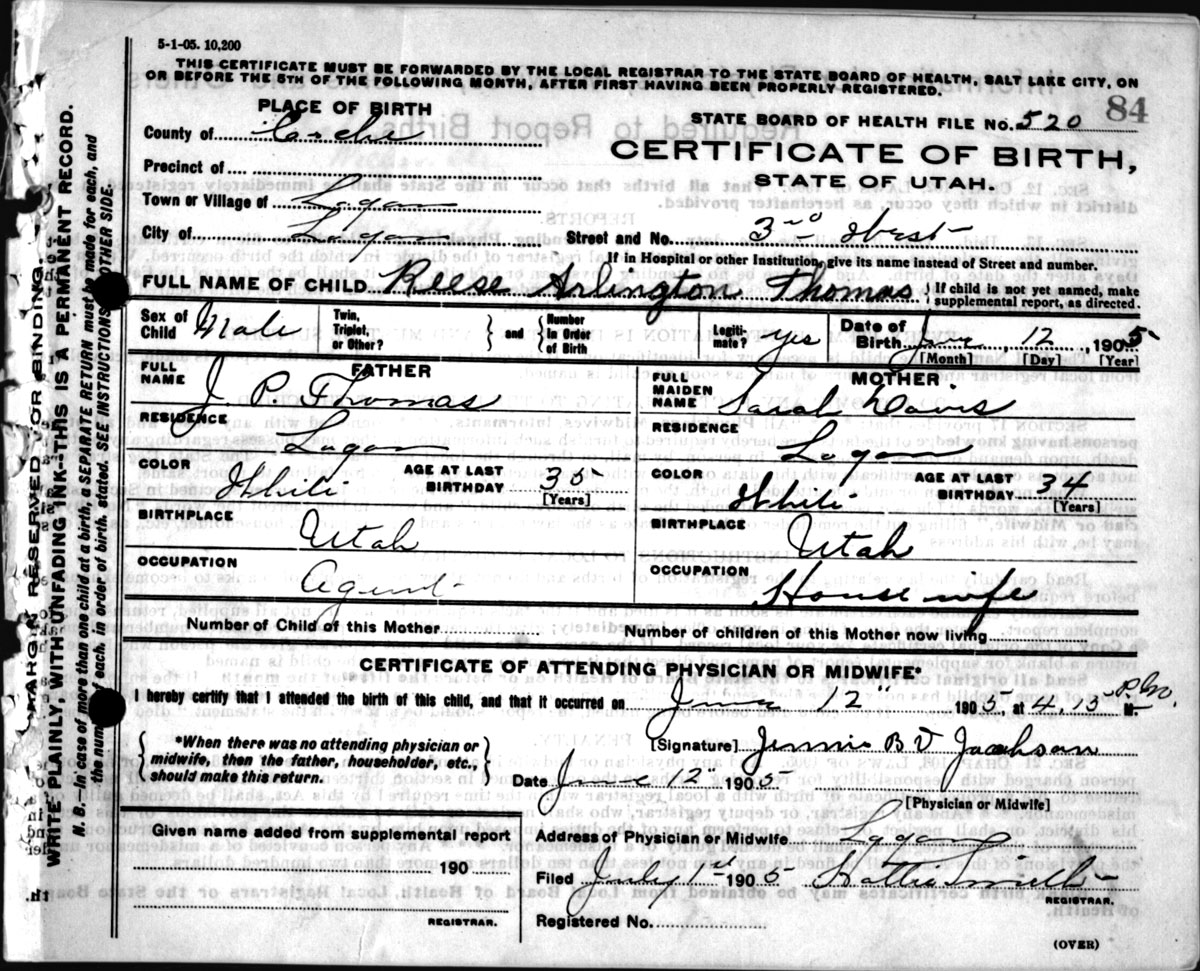 5-1-05. 10,200
THIS CERTIFICATE MUST BE FORWARDED BY THE LOCAL REGISTRAR TO THE STATE BOARD OF HEALTH, SALT LAKE CITY, ON
OR BEFORE THE 5TH OF THE FOLLOWING MONTH, AFTER FIRST HAVING BEEN PROPERLY REGISTERED.
84
PLACE OF BIRTH
STATE BOARD OF HEALTH FILE No. 520
County of Cache
CERTIFICATE OF BIRTH,
STATE OF UTAH.
Precinct of
Town or Village of Logan
City of Logan
Street and No. 3rd West
If in Hospital or other Institution, give its name instead of Street and number.
FULL NAME OF CHILD Reese Arlington Thomas { If child is not yet named, make
supplemental report, as directed.
Sex of Child Male
Twin, Triplet, or Other? } and { Number In Order of Birth
Legitimate? yes
Date of Birth June 12 1905
[Month] [Day] [Year]
FATHER
FULL NAME J. P. Thomas
MOTHER
FULL MAIDEN NAME Sarah Davis
RESIDENCE Logan
RESIDENCE Logan
COLOR White
AGE AT LAST BIRTHDAY 35 [Years]
COLOR White
AGE AT LAST BIRTHDAY 34 [Years]
BIRTHPLACE Utah
BIRTHPLACE Utah
OCCUPATION Agent
OCCUPATION House wife
Number of Child of this Mother
Number of children of this Mother now living
CERTIFICATE OF ATTENDING PHYSICIAN OR MIDWIFE
I hereby certify that I attended the birth of this child, and that it occurred on June 12" 1905, at 4.15 P.M.
{ *When there was no attending physician or
midwife, then the father, householder, etc.,
should make this return. }
[Signature] Jennie B V Jackson
Date June 12" 1905
[Physician or Midwife]
Given name added from supplemental report
190
REGISTRAR.
Address of Physician or Midwife Logan
Filed July 1st 1905 Hattie Smith
REGISTRAR.
Registered No.
(OVER)
MARGIN RESERVED FOR BINDING
WRITE PLAINLY, WITH UNFADING INK---THIS IS A PERMANENT RECORD.
N. B.—In case of more than one child at a birth, a SEPARATE RETURN must be made for each, and
the number of each, in order of birth, stated. (SEE INSTRUCTIONS OTHER SIDE.